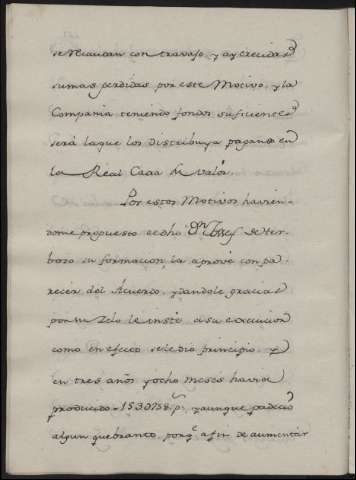 se recaudan con travajo, y ay crecidas
sumas perdidas por este Motivo, y la
Compania teniendo fondos suficientes
será la que los distribuya pagando en
la Real Caxa su valor.
Por estos Motivos havien-
dome propuesto el dho Dn Josef de
su formacion, la aprové con pa-
recer del Acuerdo, y dandole gracias
por su Zelo le insté á su execucion
como en efecto se le dió principio. Y
en tres años y ocho meses havia
producido 1530758 ps, y aunque padeció
algun quebranto, porqe. a fin de aumentar